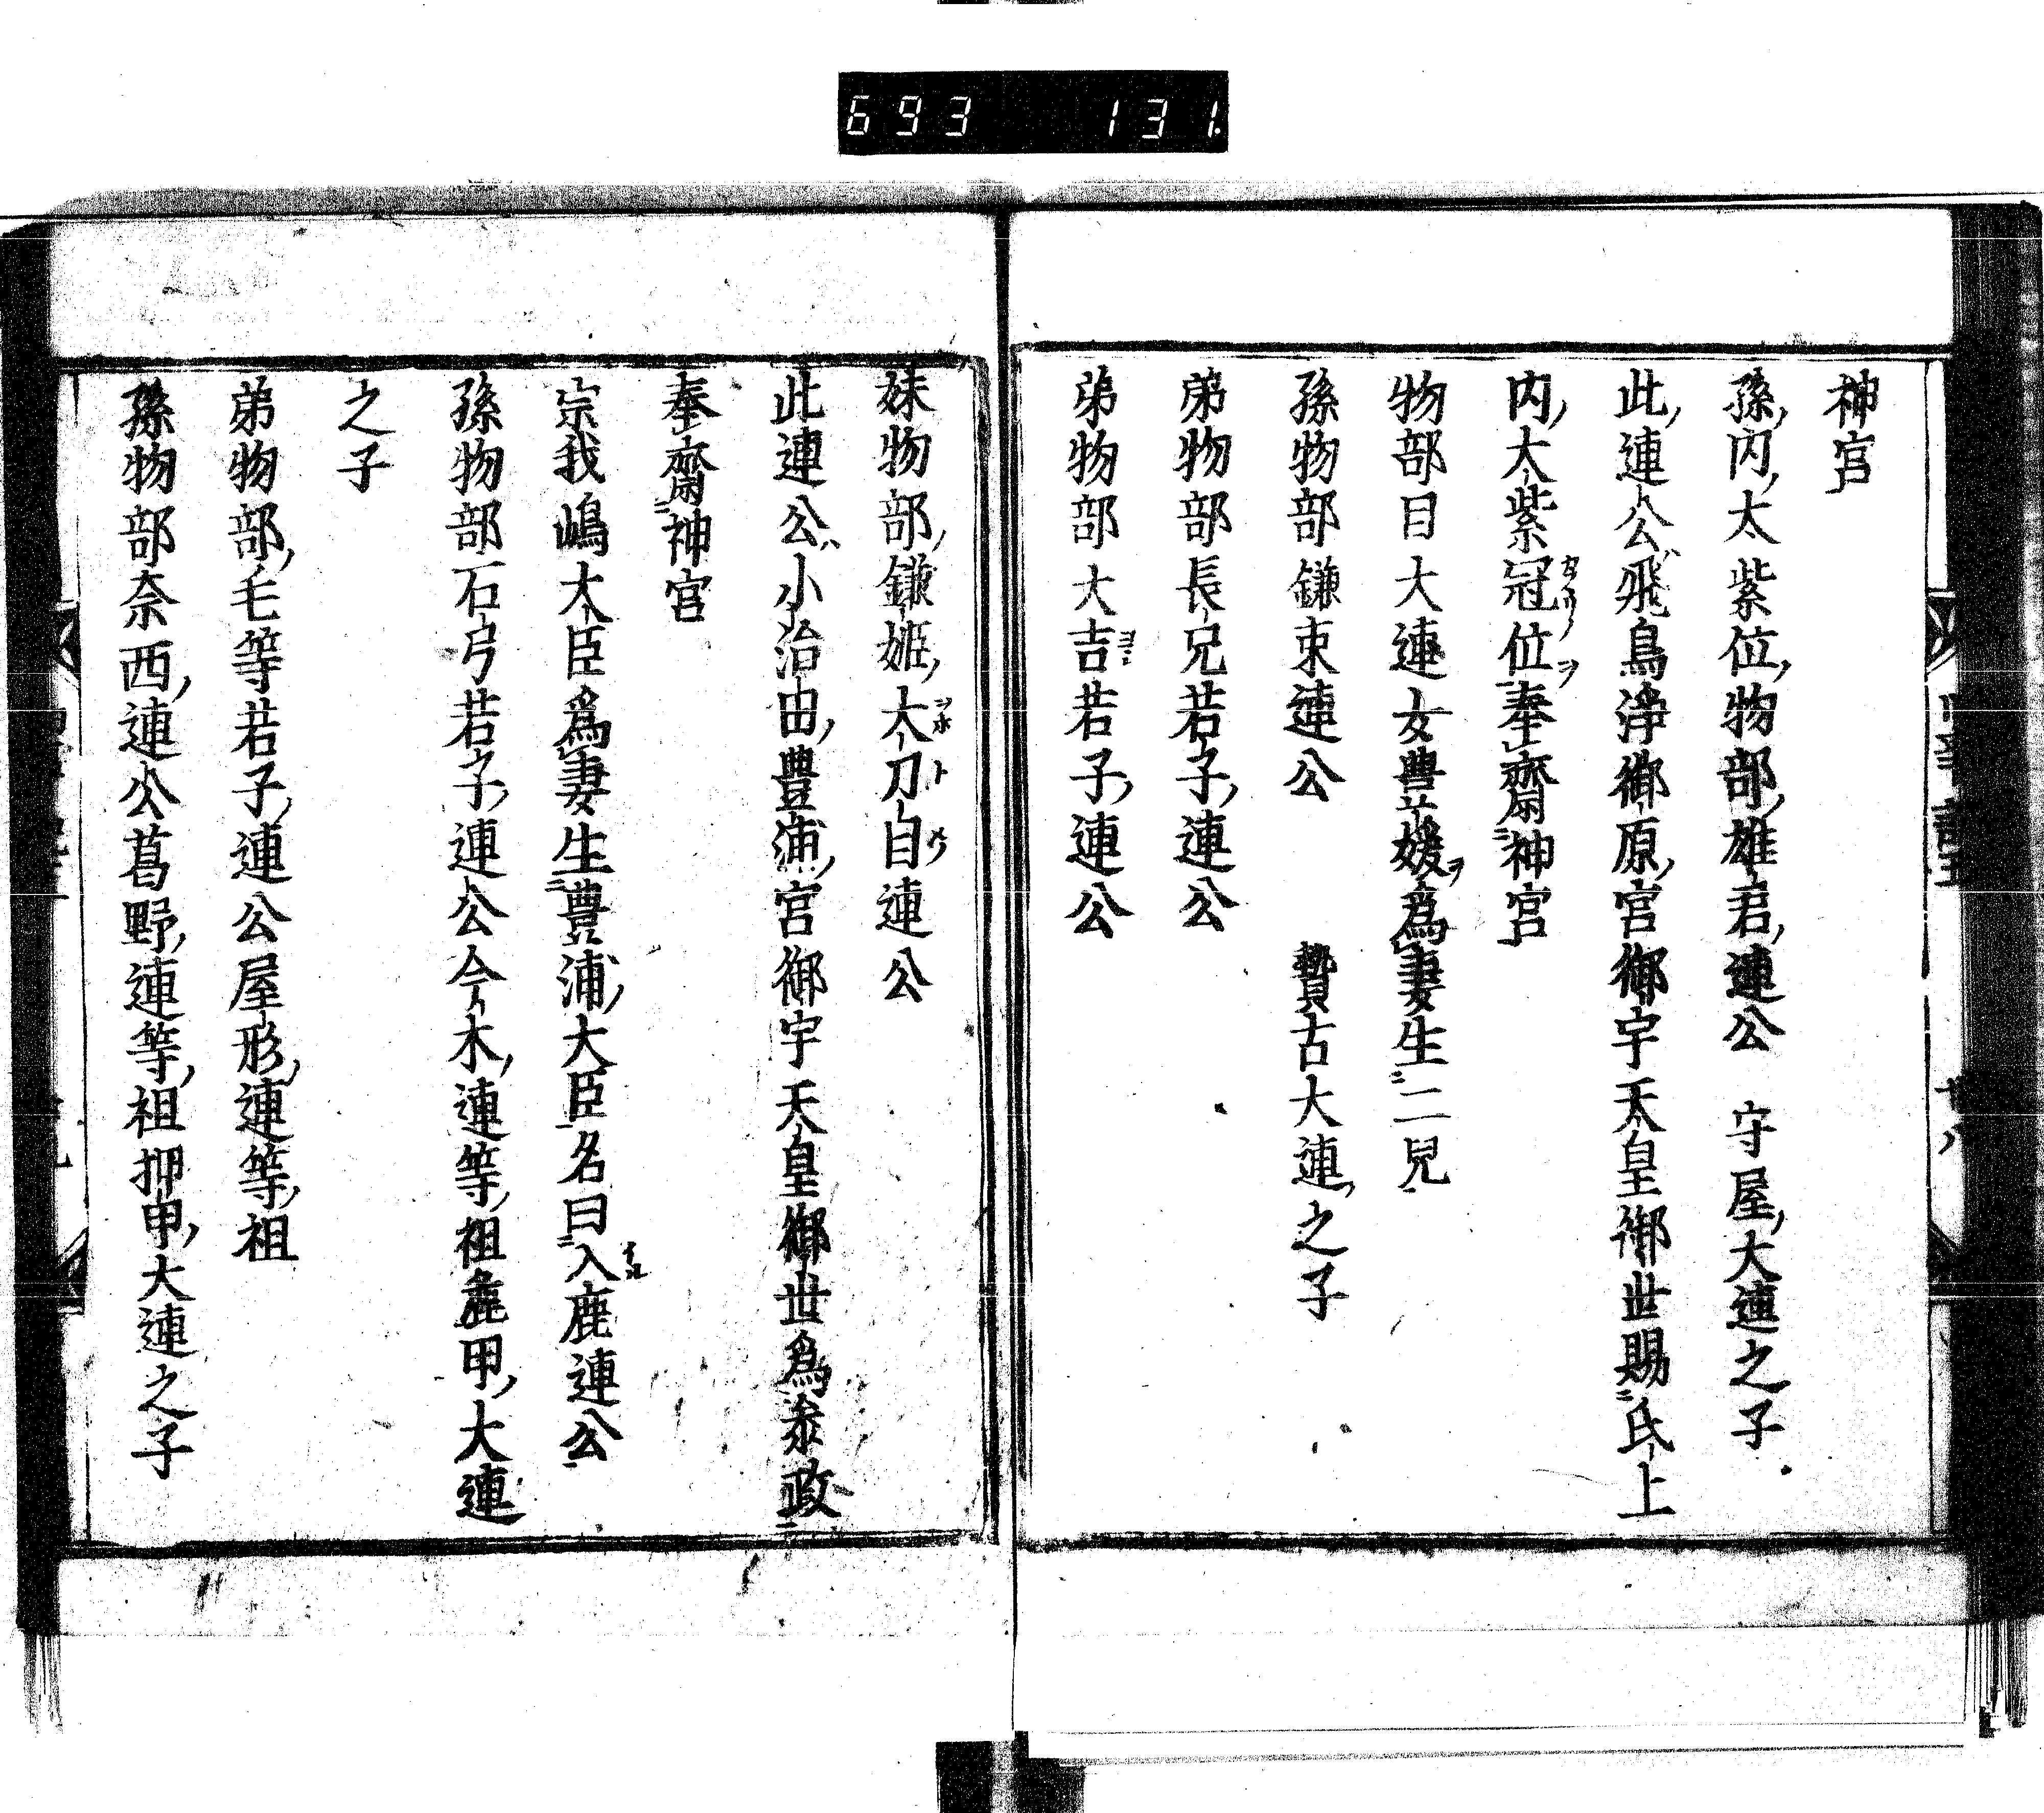 693 131
神宮
孫内大紫位物部雄君連公 守屋大連之子
此連公飛鳥浄御原宮御宇天皇御世賜氏上
内大紫冠位奉齋神宮
物部目大連女豊媛為妻生二兒
孫物部鎌束連公 贄古大連之子
弟物部長兄若子連公
弟物部大吉若子連公
妹物部鎌姫大刀自連公
此連公小治田豊浦宮御宇天皇御世為参政
奉齋神宮
宗我嶋大臣為妻生豊浦大臣名曰入鹿連公
孫物部石弓若子連公今木連等祖麁甲大連
之子
弟物部毛等若子連公屋形連等祖
孫物部奈西連公葛野連等祖押甲大連之子